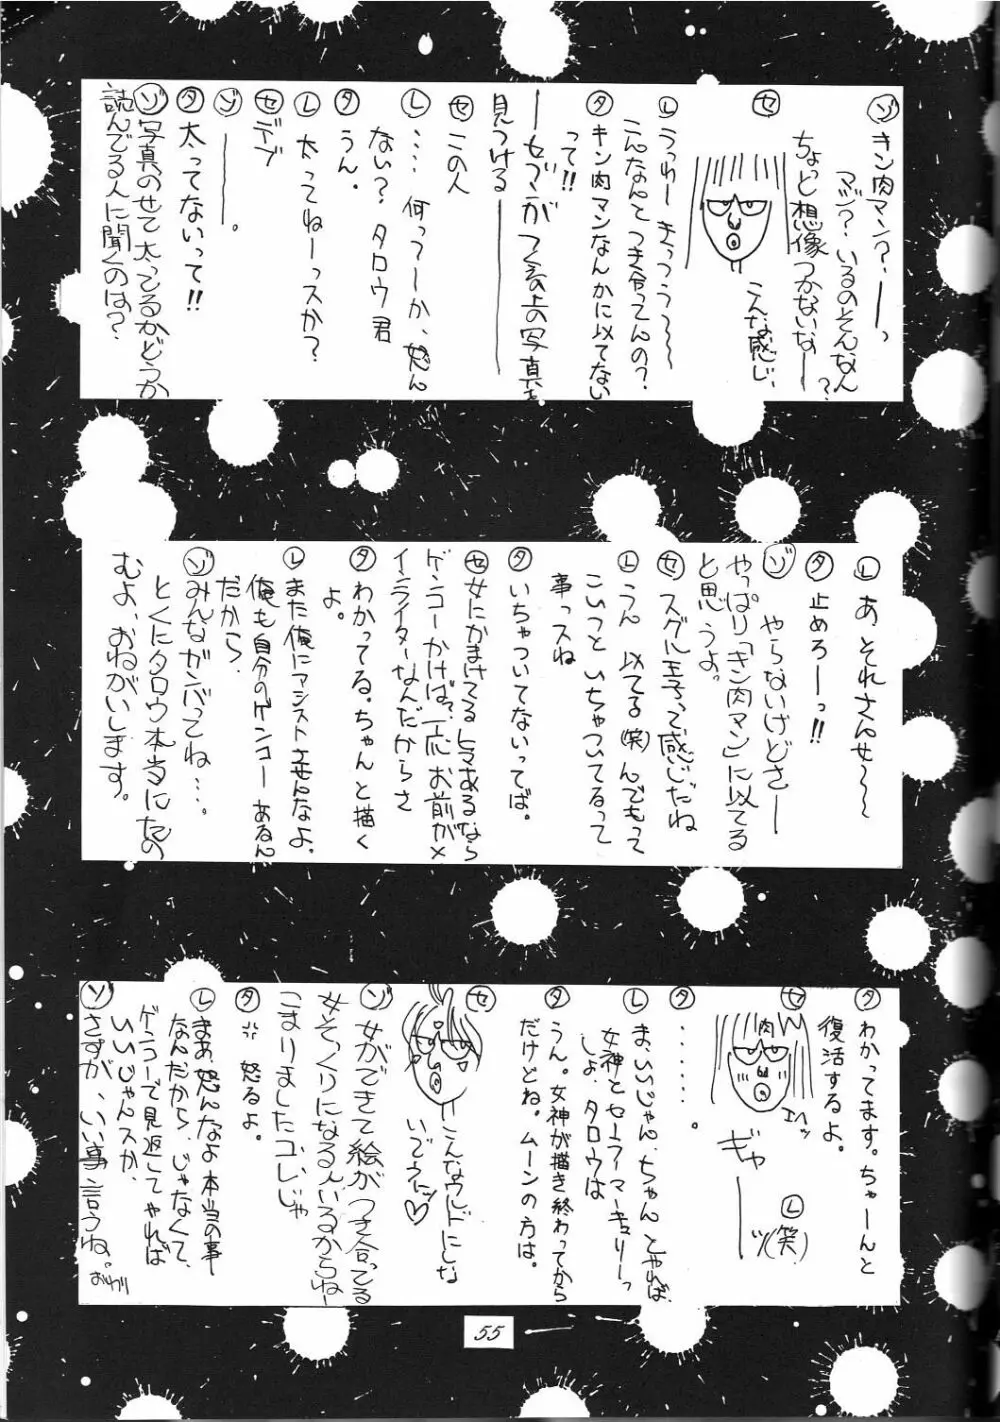 ゾ キン肉マン?.——っ
マジ?.いるのそんなん
ちょっと想像つかないなー?
セ
こんな感じ、
レ うっわー きっつう〜〜
こんなんとつき合ってんの?
タ キン肉マンなんかに似てない
って!!
——セブがてくその上の写真を
見つける——
セ この人
レ ・・・・何ってーか、怒ん
ない? タロウ君
タ うん。
レ 太ってねーっスか?
セ デブ
ゾ ——。
タ 太ってないって!!
ゾ 写真のせて太ってるかどうか
読んでる人に聞くのは?
レ あ それさんせ〜〜
タ 止めろーっ!!
ゾ やらないけどさー
やっぱり「キン肉マン」に似てる
と思うよ。
セ スグル王子って感じだね
レ うん 似てる(笑)んでもって
こいつといちゃついてるって
事っスね
タ いちゃついてないってば。
セ 女にかまけてるヒマあるなら
ゲンコーかけば?一応お前がメ
インライターなんだからさ
タ わかってる。ちゃんと描く
よ。
レ また俺にアシストさせんなよ.
俺も自分のゲンコーあるん
だから.
ゾ みんなガンバってね・・・.
とくにタロウ本当にたの
むよ、おねがいします。
タ わかってます。ちゃーんと
復活するよ。
セ
肉
エハッ
ギャ——ッ
レ(笑)
タ ・・・・・・。
レ ま、いいじゃん.ちゃんとやれば
女神とセーラーマーキュリーっ
しょ.タロウは
タ うん。女神が描き終わってから
だけどね。ムーンの方は。
セ
こんなウルドにしな
いでネッ♡
ゾ 女ができて絵がつき合ってる
女そっくりになる人いるからねー
こまりましたコレじゃ
タ 怒るよ。
レ まあ、怒んなよ本当の事
なんだから.じゃなくて、
ゲンコーで見返してやれば
いいじゃんスか、
ゾ さすが、いい事言うね。
おわり
55